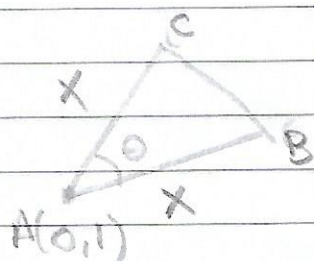 C
X
θ
B
X
A(0,1)